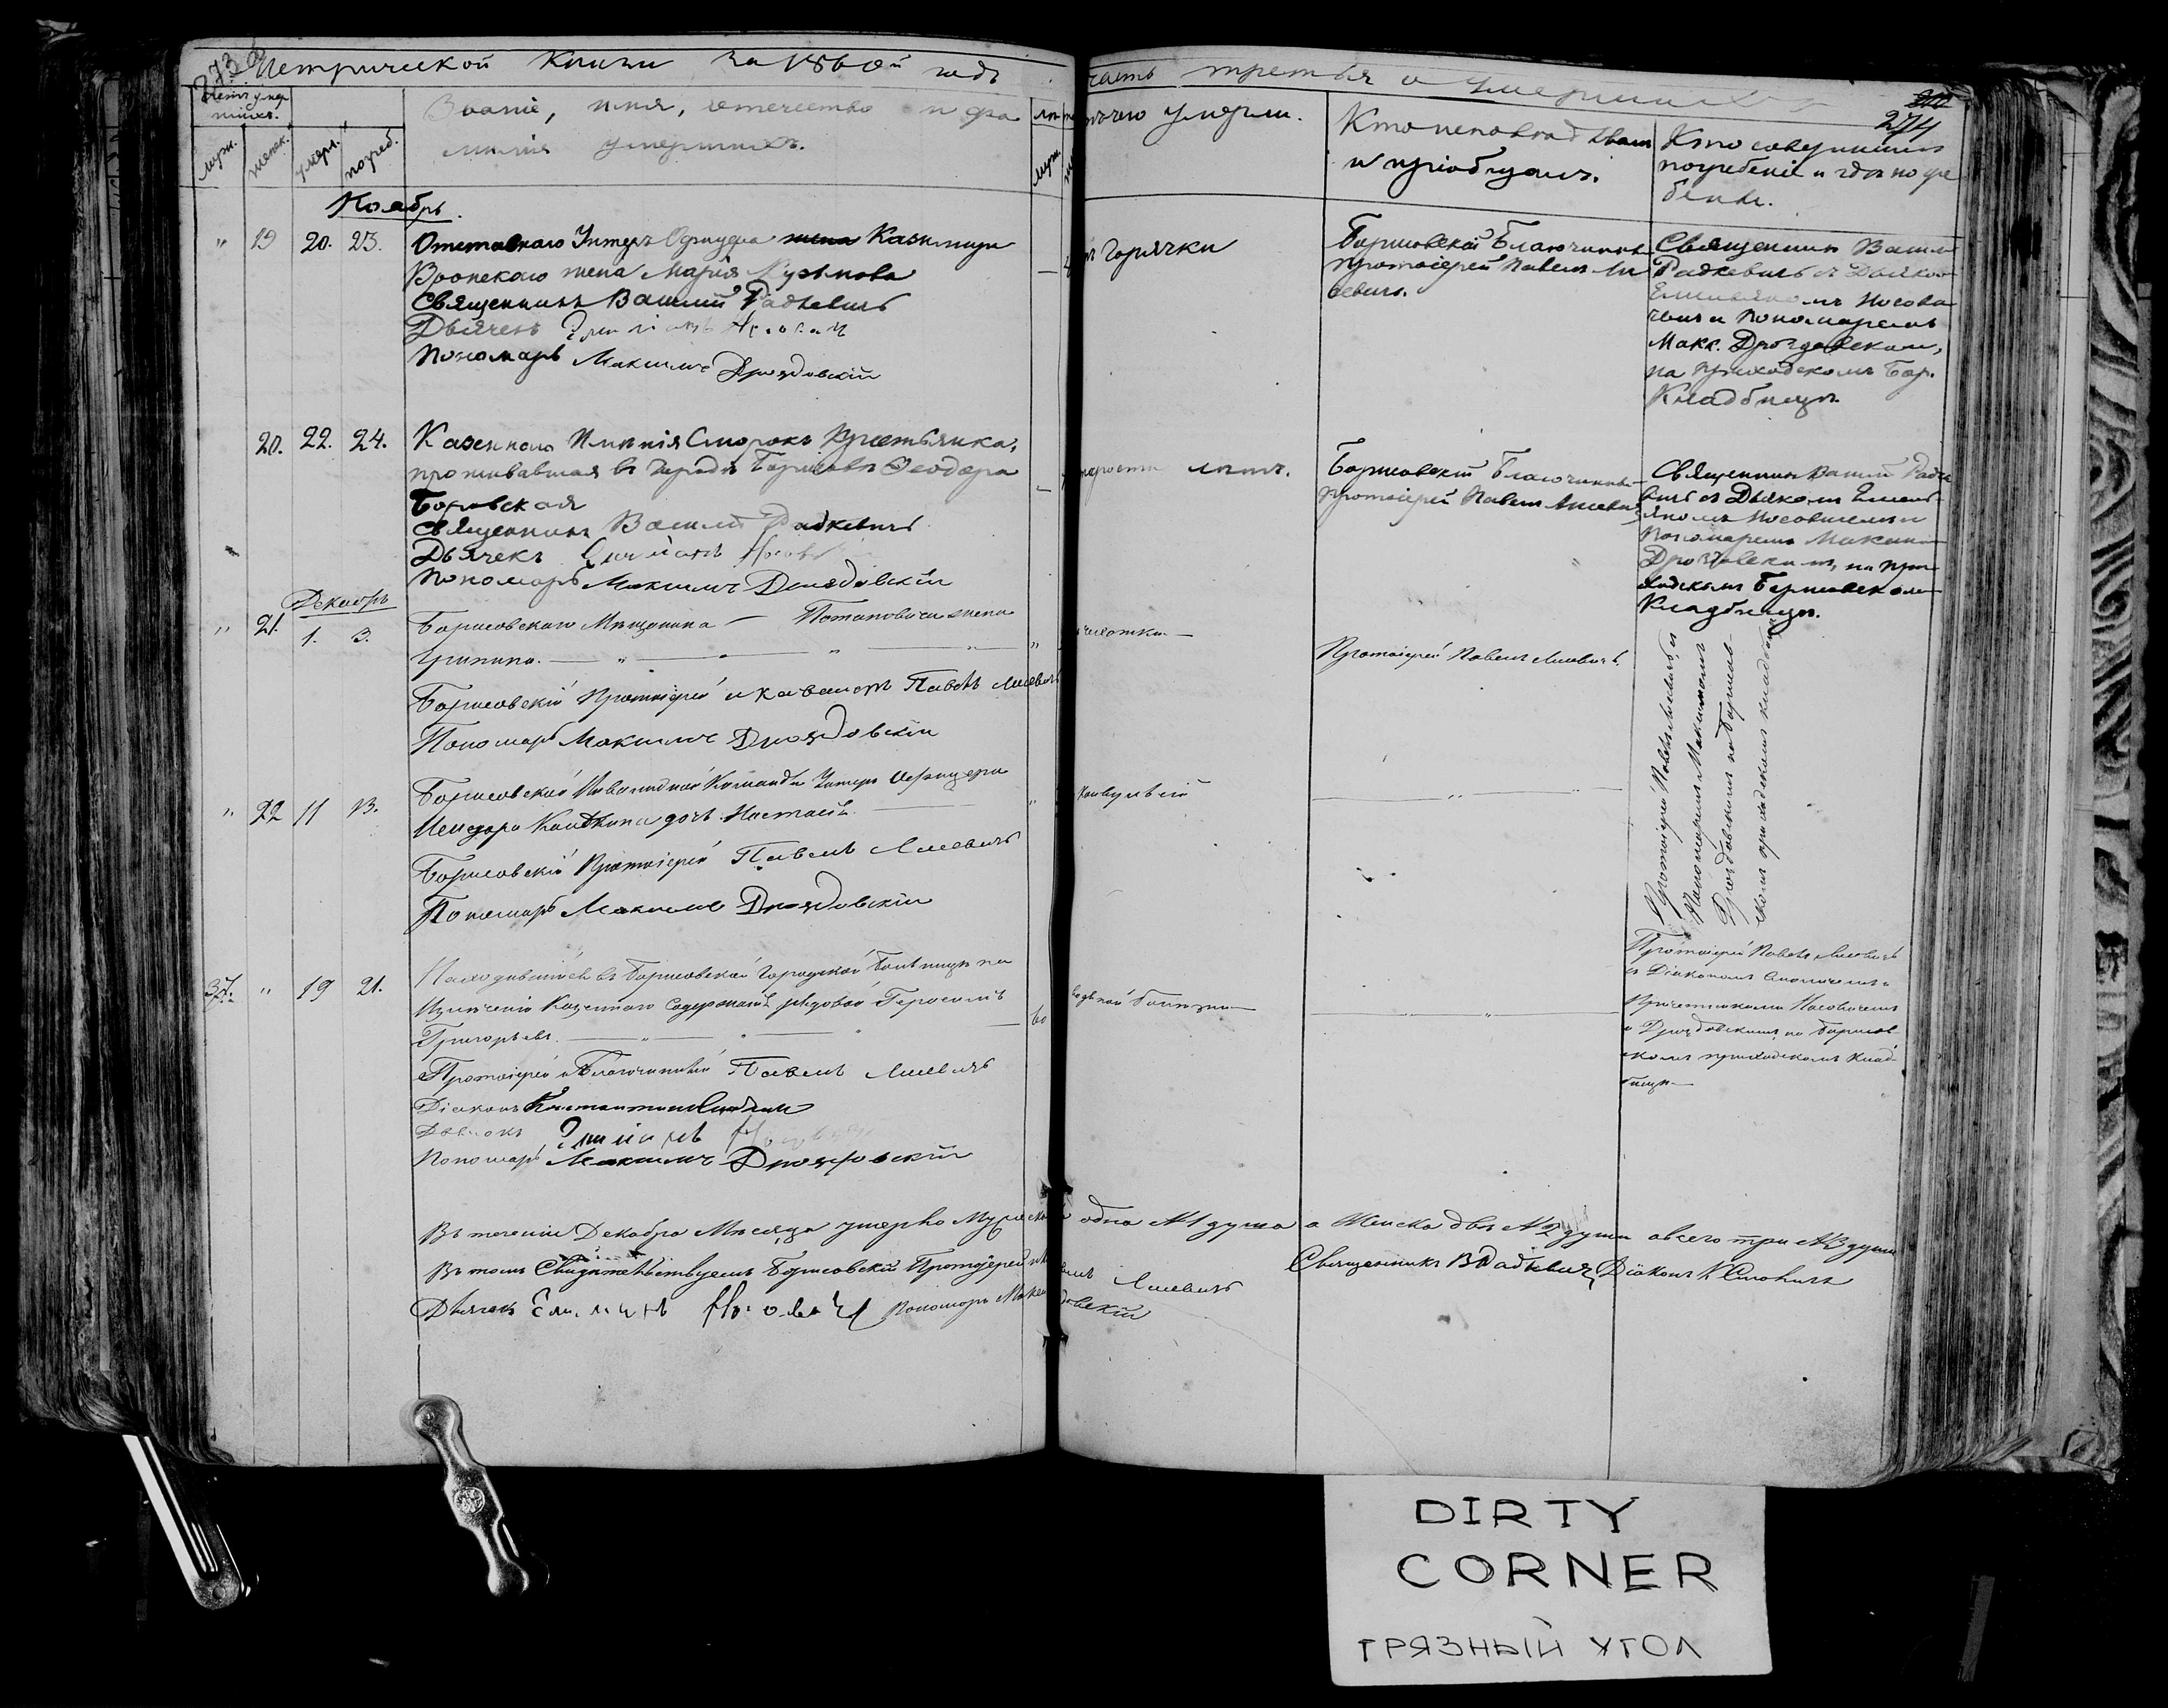 Метрической Книги за 1860й годъ часть третья о умершихъ
273
274
Счетъ умер
шихъ.
муж.
женск.
умерл.
погреб.
Званіе, имя, отечество и фа
милія умершихъ.
муж.
чего умерли.
Кто исповѣдывалъ
и пріобщалъ.
Кто совершалъ
погребеніе и гдѣ погре
бены.
Ноябрь.
" 19 20. 23. Отставнаго Унтеръ Офицера Казимира
жена Марія
Священникъ Василій Радкевичъ
Дьячекъ
Пономарь Максимъ Дроздовскій
Горячки
Борисовскій Благочинный
протоіерей Павелъ Ли
севичъ.
Священник Васил
Радкевичъ съ Дьячкомъ
Емиліяномъ Носови
чемъ и Пономаремъ
Макс. Дроздовским,
на приходскомъ Бор.
Кладбищѣ.
20. 22. 24. Казеннаго Имѣнія Крестьянка,
проживавшая въ городѣ Борисовѣ Ѳеодора
Боровская
Священникъ Василій Радкевичъ
Дьячекъ Емиліанъ
Пономарь Максимъ Дроздовскій
лѣтъ.
Борисовскій Благочинный
протоіерей Павелъ Лисевичъ
Священникъ Василій Радке
вичъ съ Дьячкомъ Емил
іяномъ Носовичемъ и
Пономаремъ Максим
Дроздовскимъ, на при
ходскомъ Борисовском
Кладбищѣ.
Декабрь
" 21. 1. 3. Борисовскаго Мѣщанина — Потаповича жена
Борисовскій Протоіерей и кавалеръ Павелъ Лисевичъ
Пономарь Максимъ Дроздовскій
чахотки
Протоіерей Павелъ Лисевичъ.
Протоіерей Павелъ Лисевичъ съ
Пономаремъ Максимомъ
Дроздовскимъ на Борисов-
скомъ приходскомъ кладбищѣ
" 22 11 13. Борисовской Инвалидной Команды Унтеръ Офицера
дочь Настасія
Борисовскій Протоіерей Павелъ Лисевичъ
Пономарь Максимъ Дроздовскій
Конвульсій
37. " 19 21. Находившійся въ Борисовской Городской Больницѣ на
Излеченіи рядовой Герасимъ
Григорьевъ.
60
болѣзни
Протоіерей и Благочинный Павелъ Лисевичъ
Діаконъ
Дьячекъ Емиліанъ
Пономарь Максимъ Дроздовскій
Протоіерей Павелъ Лисевичъ
съ Діакономъ и
Причетниками Носовичемъ
и Дроздовскимъ, на Борисов
скомъ приходскомъ клад-
бищѣ
Въ теченіи Декабря Мѣсяца умерло Мужска одна №1 душа а Женска двѣ №2 души а всего три №3 души
Въ томъ Свидѣтельствуемъ Борисовскій Протоіерей Лисевичъ Священникъ В Радкевичъ, Діаконъ К
Дьячекъ Пономарь
DIRTY
CORNER
ГРЯЗНЫЙ УГОЛ